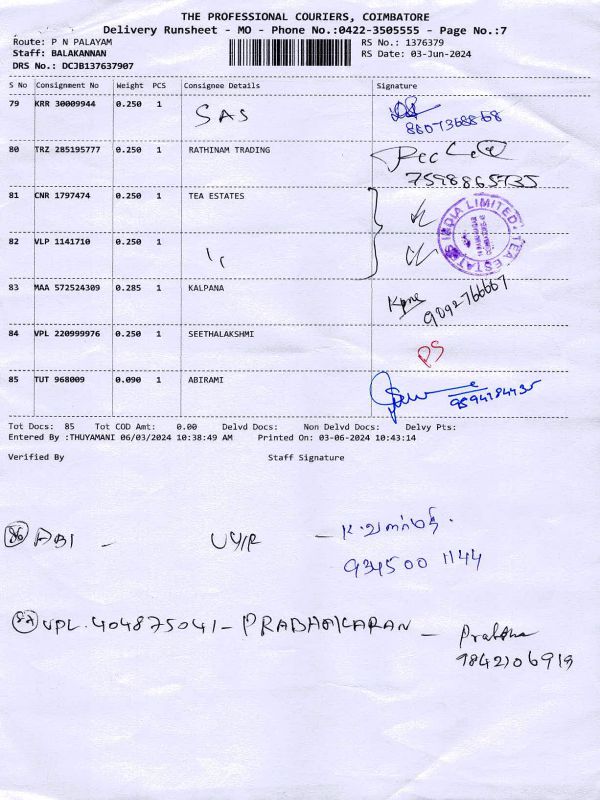 THE PROFESSIONAL COURIERS, COIMBATORE
Delivery Runsheet - MO - Phone No.:0422-3505555 - Page No.:7
Route: P N PALAYAM RS No.: 1376379
Staff: BALAKANNAN RS Date: 03-Jun-2024
DRS No.: DCJB137637907
S No Consignment No Weight PCS Consignee Details Signature
79 KRR 30009944 0.250 1 SAS
8807368868
80 TRZ 285195777 0.250 1 RATHINAM TRADING
7598865735
81 CNR 1797474 0.250 1 TEA ESTATES
TEA ESTATES INDIA LIMITED
82 VLP 1141710 0.250 1
83 MAA 572524309 0.285 1 KALPANA
9092766667
84 VPL 220999976 0.250 1 SEETHALAKSHMI
PS
85 TUT 968009 0.090 1 ABIRAMI
Tot Docs: 85 Tot COD Amt: 0.00 Delvd Docs: Non Delvd Docs: Delvy Pts:
Entered By :THUYAMANI 06/03/2024 10:38:49 AM Printed On: 03-06-2024 10:43:14
Verified By Staff Signature
86 ABI - UYIR - க. வளர்மதி.
934500 1144
87 VPL. 404875041 - PRABHAKARAN - Prabha
9842106919